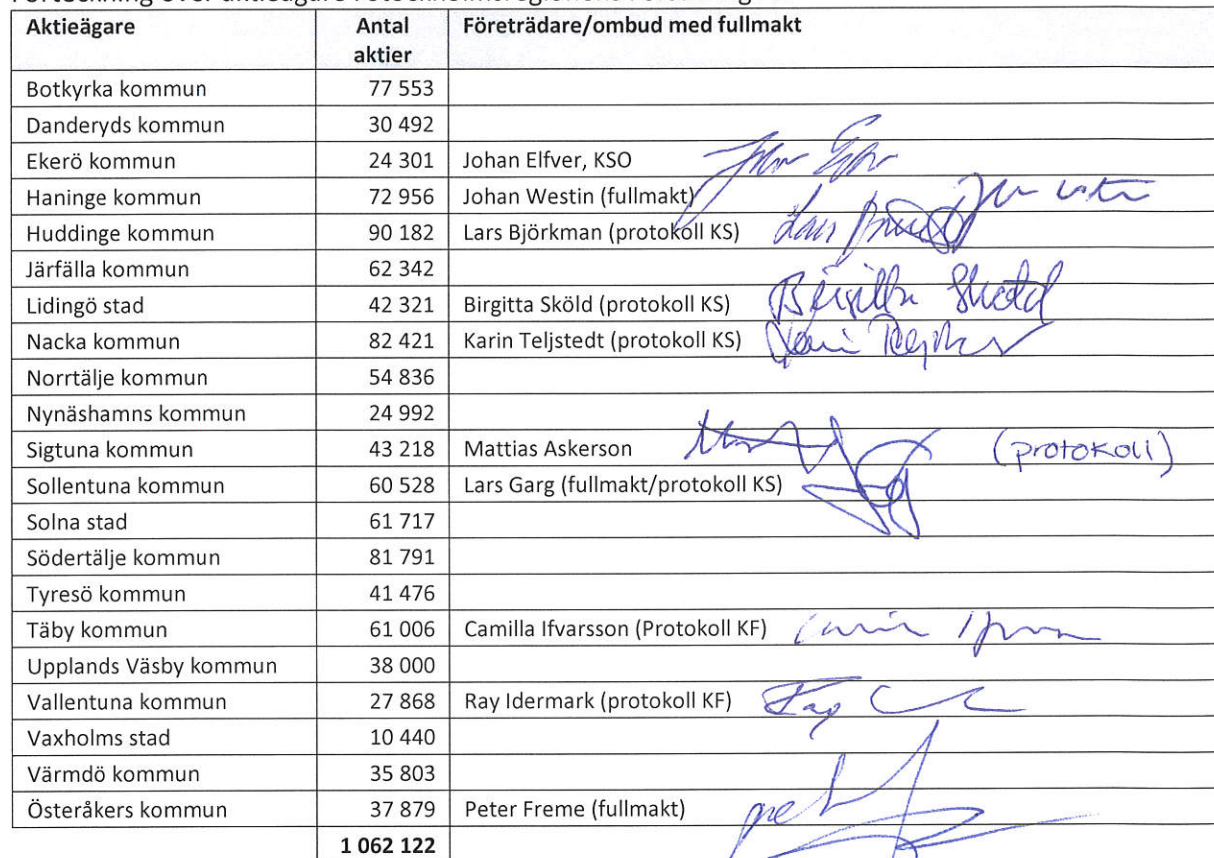 Aktieägare Antal aktier Företrädare/ombud med fullmakt
Botkyrka kommun 77 553
Danderyds kommun 30 492
Ekerö kommun 24 301 Johan Elfver, KSO
Haninge kommun 72 956 Johan Westin (fullmakt)
Huddinge kommun 90 182 Lars Björkman (protokoll KS)
Järfälla kommun 62 342
Lidingö stad 42 321 Birgitta Sköld (protokoll KS) Birgitta Sköld
Nacka kommun 82 421 Karin Teljstedt (protokoll KS)
Norrtälje kommun 54 836
Nynäshamns kommun 24 992
Sigtuna kommun 43 218 Mattias Askerson (protokoll)
Sollentuna kommun 60 528 Lars Garg (fullmakt/protokoll KS)
Solna stad 61 717
Södertälje kommun 81 791
Tyresö kommun 41 476
Täby kommun 61 006 Camilla Ifvarsson (Protokoll KF)
Upplands Väsby kommun 38 000
Vallentuna kommun 27 868 Ray Idermark (protokoll KF)
Vaxholms stad 10 440
Värmdö kommun 35 803
Österåkers kommun 37 879 Peter Freme (fullmakt)
1 062 122